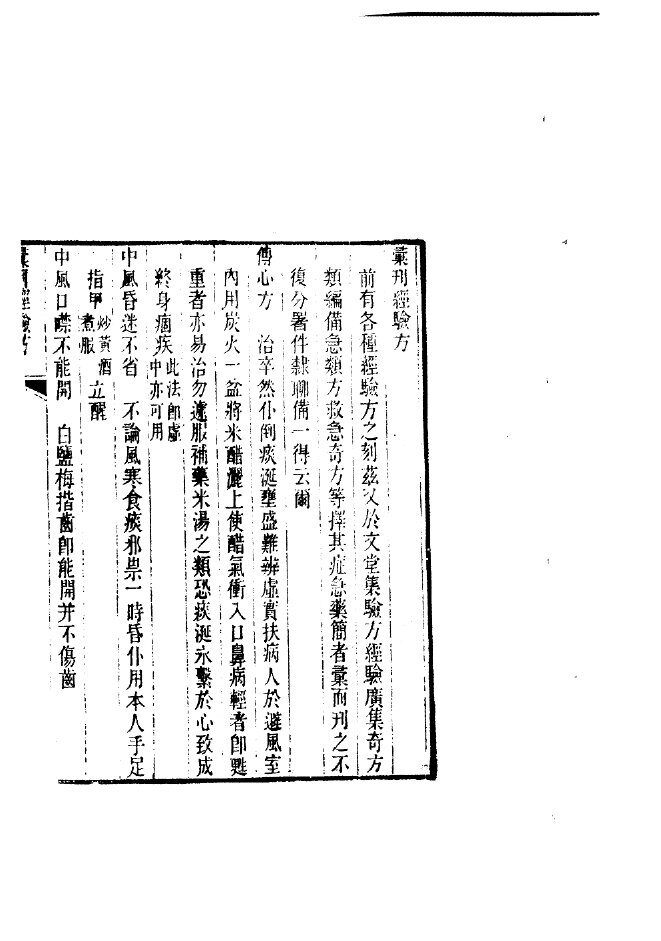 彙刊經驗方
前有各種經驗方之刻茲又於文堂集驗方經驗廣集奇方
類編備急類方救急奇方等擇其症急藥簡者彙而刊之不
復分署件隸聊備一得云爾
傳心方 治卒然仆倒痰涎壅盛難辨虛實扶病人於避風室
內用炭火一盆將米醋灑上使醋氣衝入口鼻病輕者卽甦
重者亦易治勿遽服補藥米湯之類恐痰涎永繫於心致成
終身痼疾此法卽虛中亦可用
中風昏迷不省 不論風寒食痰邪祟一時昏仆用本人手足
指甲炒黃酒煮服立醒
中風口噤不能開 白鹽梅揩齒卽能開并不傷齒
彙刊經驗方